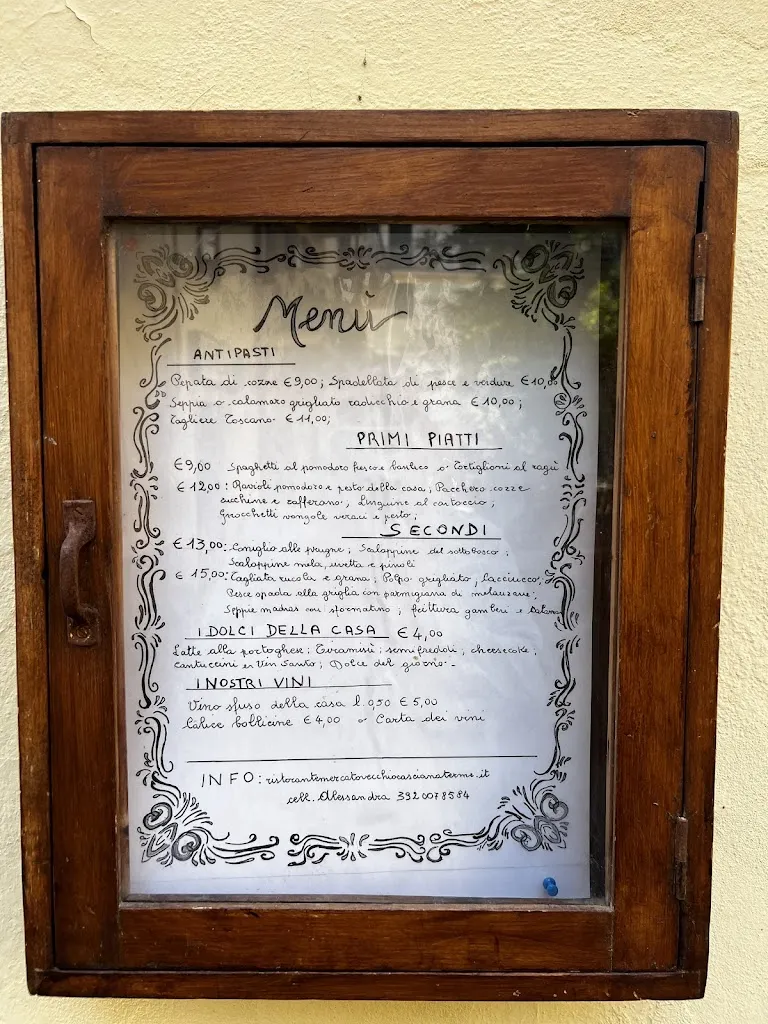 Menù
ANTIPASTI
Pepata di cozze €9,00; Spadellata di pesce e verdure €10,00
Seppia o calamaro grigliato radicchio e grana €10,00;
Tagliere Toscano €11,00;
PRIMI PIATTI
€9,00 Spaghetti al pomodoro fresco e basilico o Tortiglioni al ragù
€12,00: Ravioli pomodoro e pesto della casa; Pacchero cozze
zucchine e zafferano; Linguine al cartoccio;
Gnocchetti vongole veraci e pesto;
SECONDI
€13,00: Coniglio alle prugne; Scaloppine del sottobosco;
Scaloppine mela, uvetta e pinoli
€15,00: Tagliata rucola e grana; Polpo grigliato, Cacciucco;
Pesce spada alla griglia con parmigiana di melanzane;
Seppie madras con sformatino; frittura gamberi e
I DOLCI DELLA CASA €4,00
Latte alla portoghese; Tiramisù; semifreddi; cheesecake;
Cantuccini e Vin Santo; Dolce del giorno.-
I NOSTRI VINI
Vino sfuso della casa l.0,50 €5,00
Calice bollicine €4,00 o Carta dei vini
INFO: ristorantemercatovecchiocascianaterme.it
cell. Alessandra 392 0078584